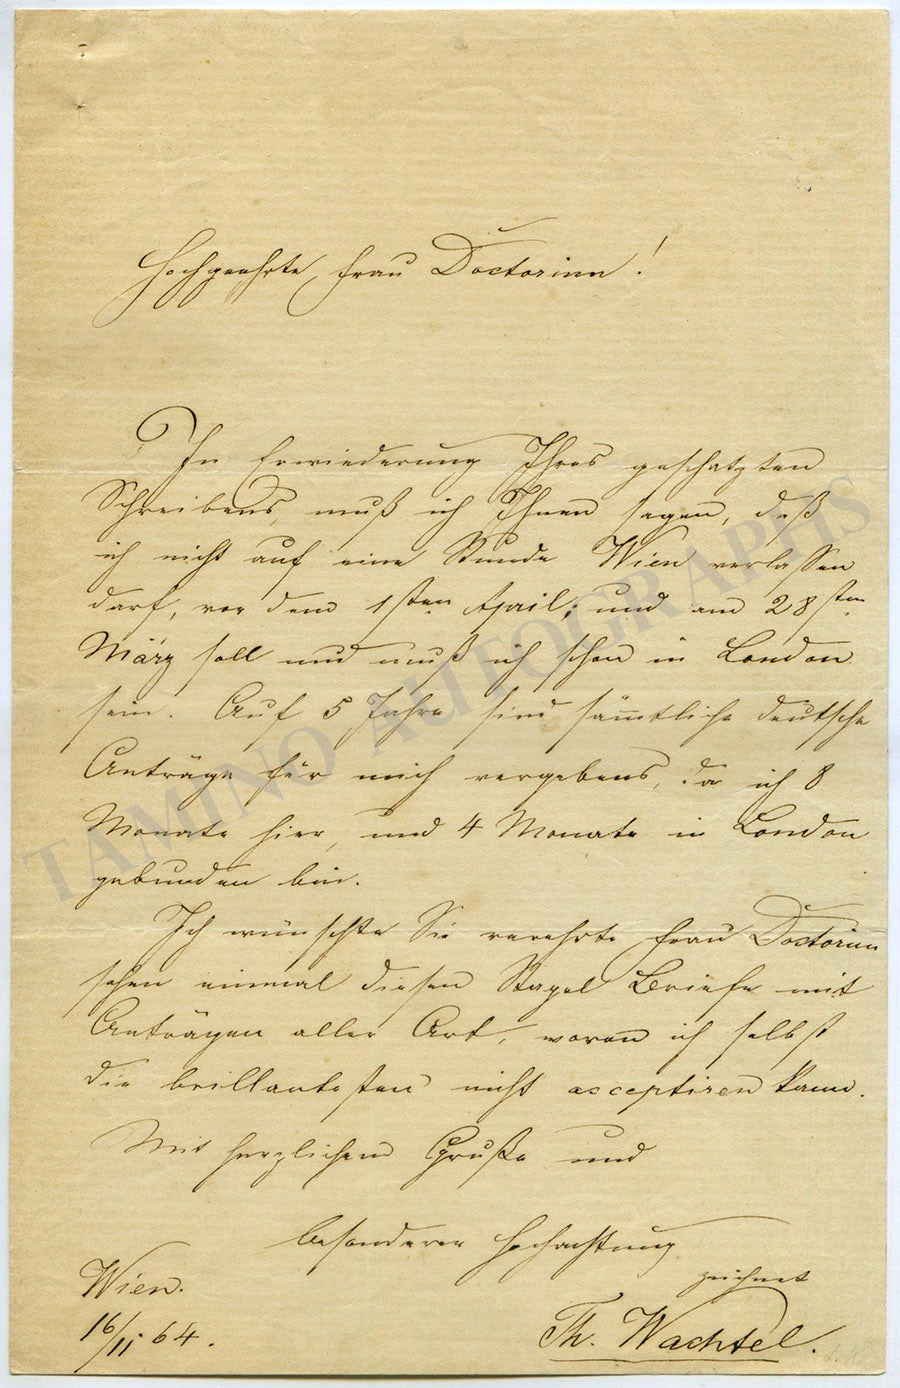 Hochgeehrte Frau Doctorinn!
In Erwiederung Ihres geschatzten
Schreibens, muß ich Ihnen sagen, daß
ich nicht auf eine Stunde Wien verlassen
darf, vor dem 1sten April; und am 28sten
März soll und muß ich schon in London
sein. Auf 5 Jahre sind säm̄tliche deutsche
Anträge für mich vergebens, da ich 8
Monate hier, und 4 Monate in London
gebunden bin.
Ich wünschte Sie verehrte Frau Doctorinn
sehen einmal diesen Stapel Briefe mit
Anträgen aller Art, wovon ich selbst
die brillantesten nicht acceptiren kann.
Mit herzlichem Gruße und
besonderer Hochachtung
zeichnet
Wien.
16/11 64.
Th. Wachtel.
TAMINO AUTOGRAPHS